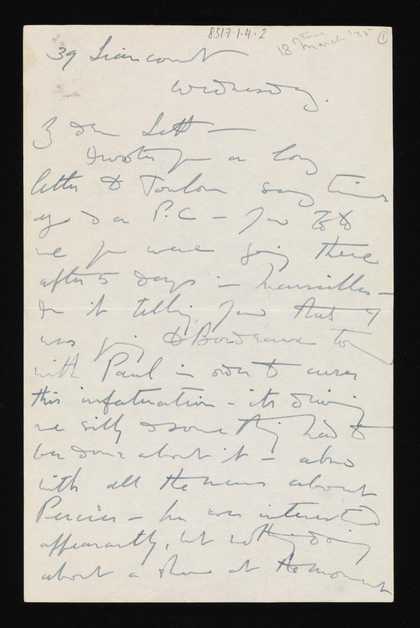 8317-1-4-2
18 March '25
1
39 Liancourt
Wednesday.
dear Seth —
I wrote you a long
letter to Toulon some time
ago & a P.C — you told
me you were going there
after 5 days in Marseilles —
In it telling you that I
was going to Bordeaux tom
with Paul in order to cure
this infatuation — its driving
me silly & something had to
be done about it — also
with all the news about
— he was interested
apparently, but nothing doing
about a show at the moment